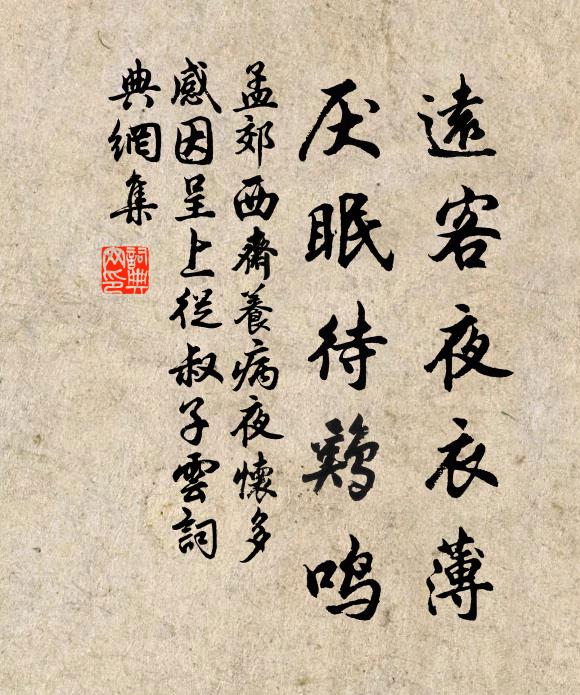 遠客夜衣薄
厌眠待鷄鸣
孟郊西齋養病夜懷多
感因呈上從叔子雲詞
典網集
詞典